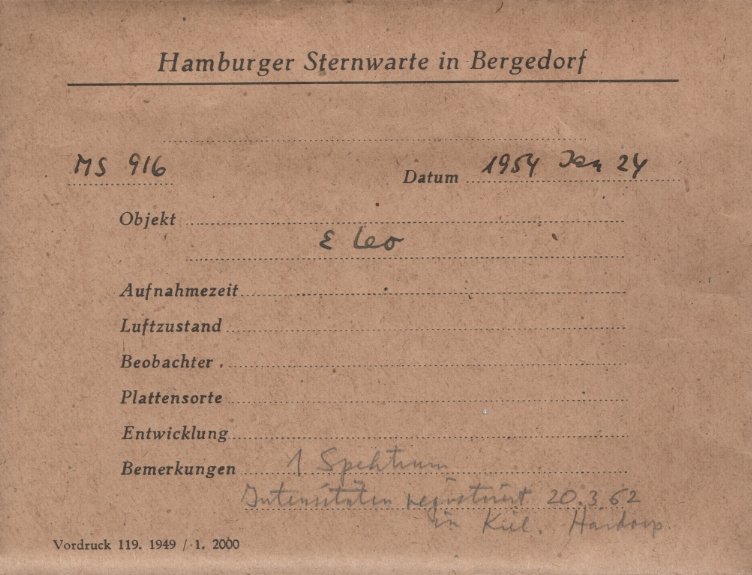 Hamburger Sternwarte in Bergedorf
MS 916
Datum 1954 Jan 24
Objekt
ε Leo
Aufnahmezeit
Luftzustand
Beobachter
Plattensorte
Entwicklung
Bemerkungen 1 Spektrum
Intensitäten registriert 20.3.62
in Kiel. Hardorp.
Vordruck 119. 1949 / 1. 2000